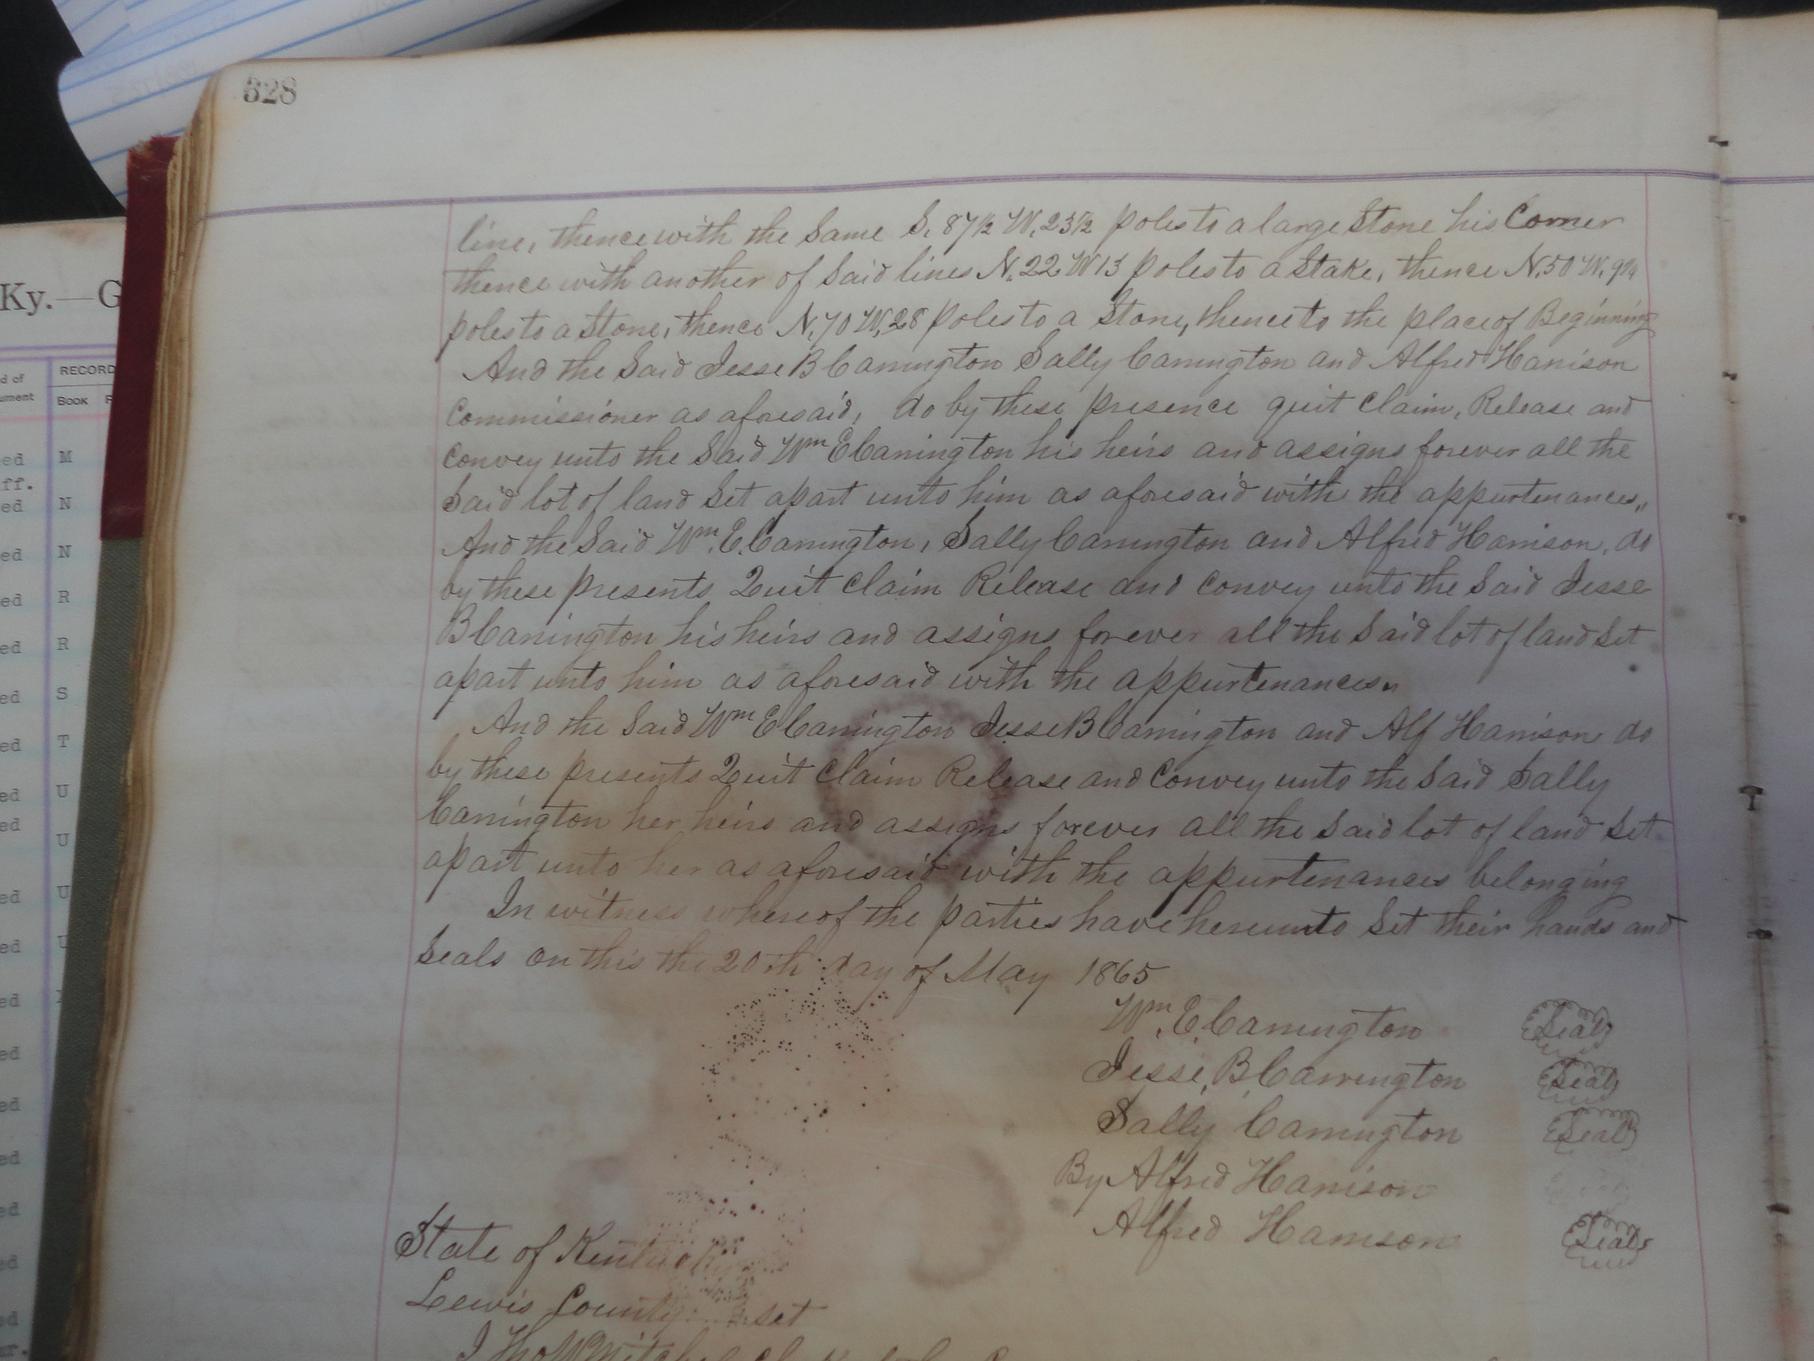 328
line, thence with the Same S, 87½ W, 23½ poles to a large Stone his Corner
thence with another of Said lines N. 22 W 13 poles to a Stake, thence N, 50 W, 9¼
poles to a Stone, thence N, 70 W, 28 poles to a Stone, thence to the place of Beginning
And the Said Jesse B Carrington Sally Carrington and Alfred Harrison
Commissioner as aforesaid, do by these presence quit Claim, Release and
Convey unto the Said Wm E Carrington his heirs and assigns forever all the
Said lot of land Set apart unto him as aforesaid with the appurtenances,,
And the Said Wm. E. Carrington, Sally Carrington and Alfred Harrison, do
by these presents Quit Claim Release and Convey unto the Said Jesse
B Carrington his heirs and assigns forever all the Said lot of land Set
apart unto him as aforesaid with the appurtenances,,
And the Said Wm E Carrington Jesse B Carrington and Alf Harrison do
by these presents Quit Claim Release and Convey unto the Said Sally
Carrington her heirs and assigns forever all the Said lot of land Set
apart unto her as aforesaid with the appurtenances belonging
In witness whereof the parties have hereunto Set their hands and
Seals on this the 20th day of May 1865
Wm. E. Carrington Seal
Jesse, B Carrington Seal
Sally Carrington Seal
By Alfred Harrison
Alfred Harrison Seal
State of Kentucky
Lewis County set
I Tho W Mitchel
Ky.—G
RECORD
Book
M
N
N
R
R
S
T
U
U
U
U